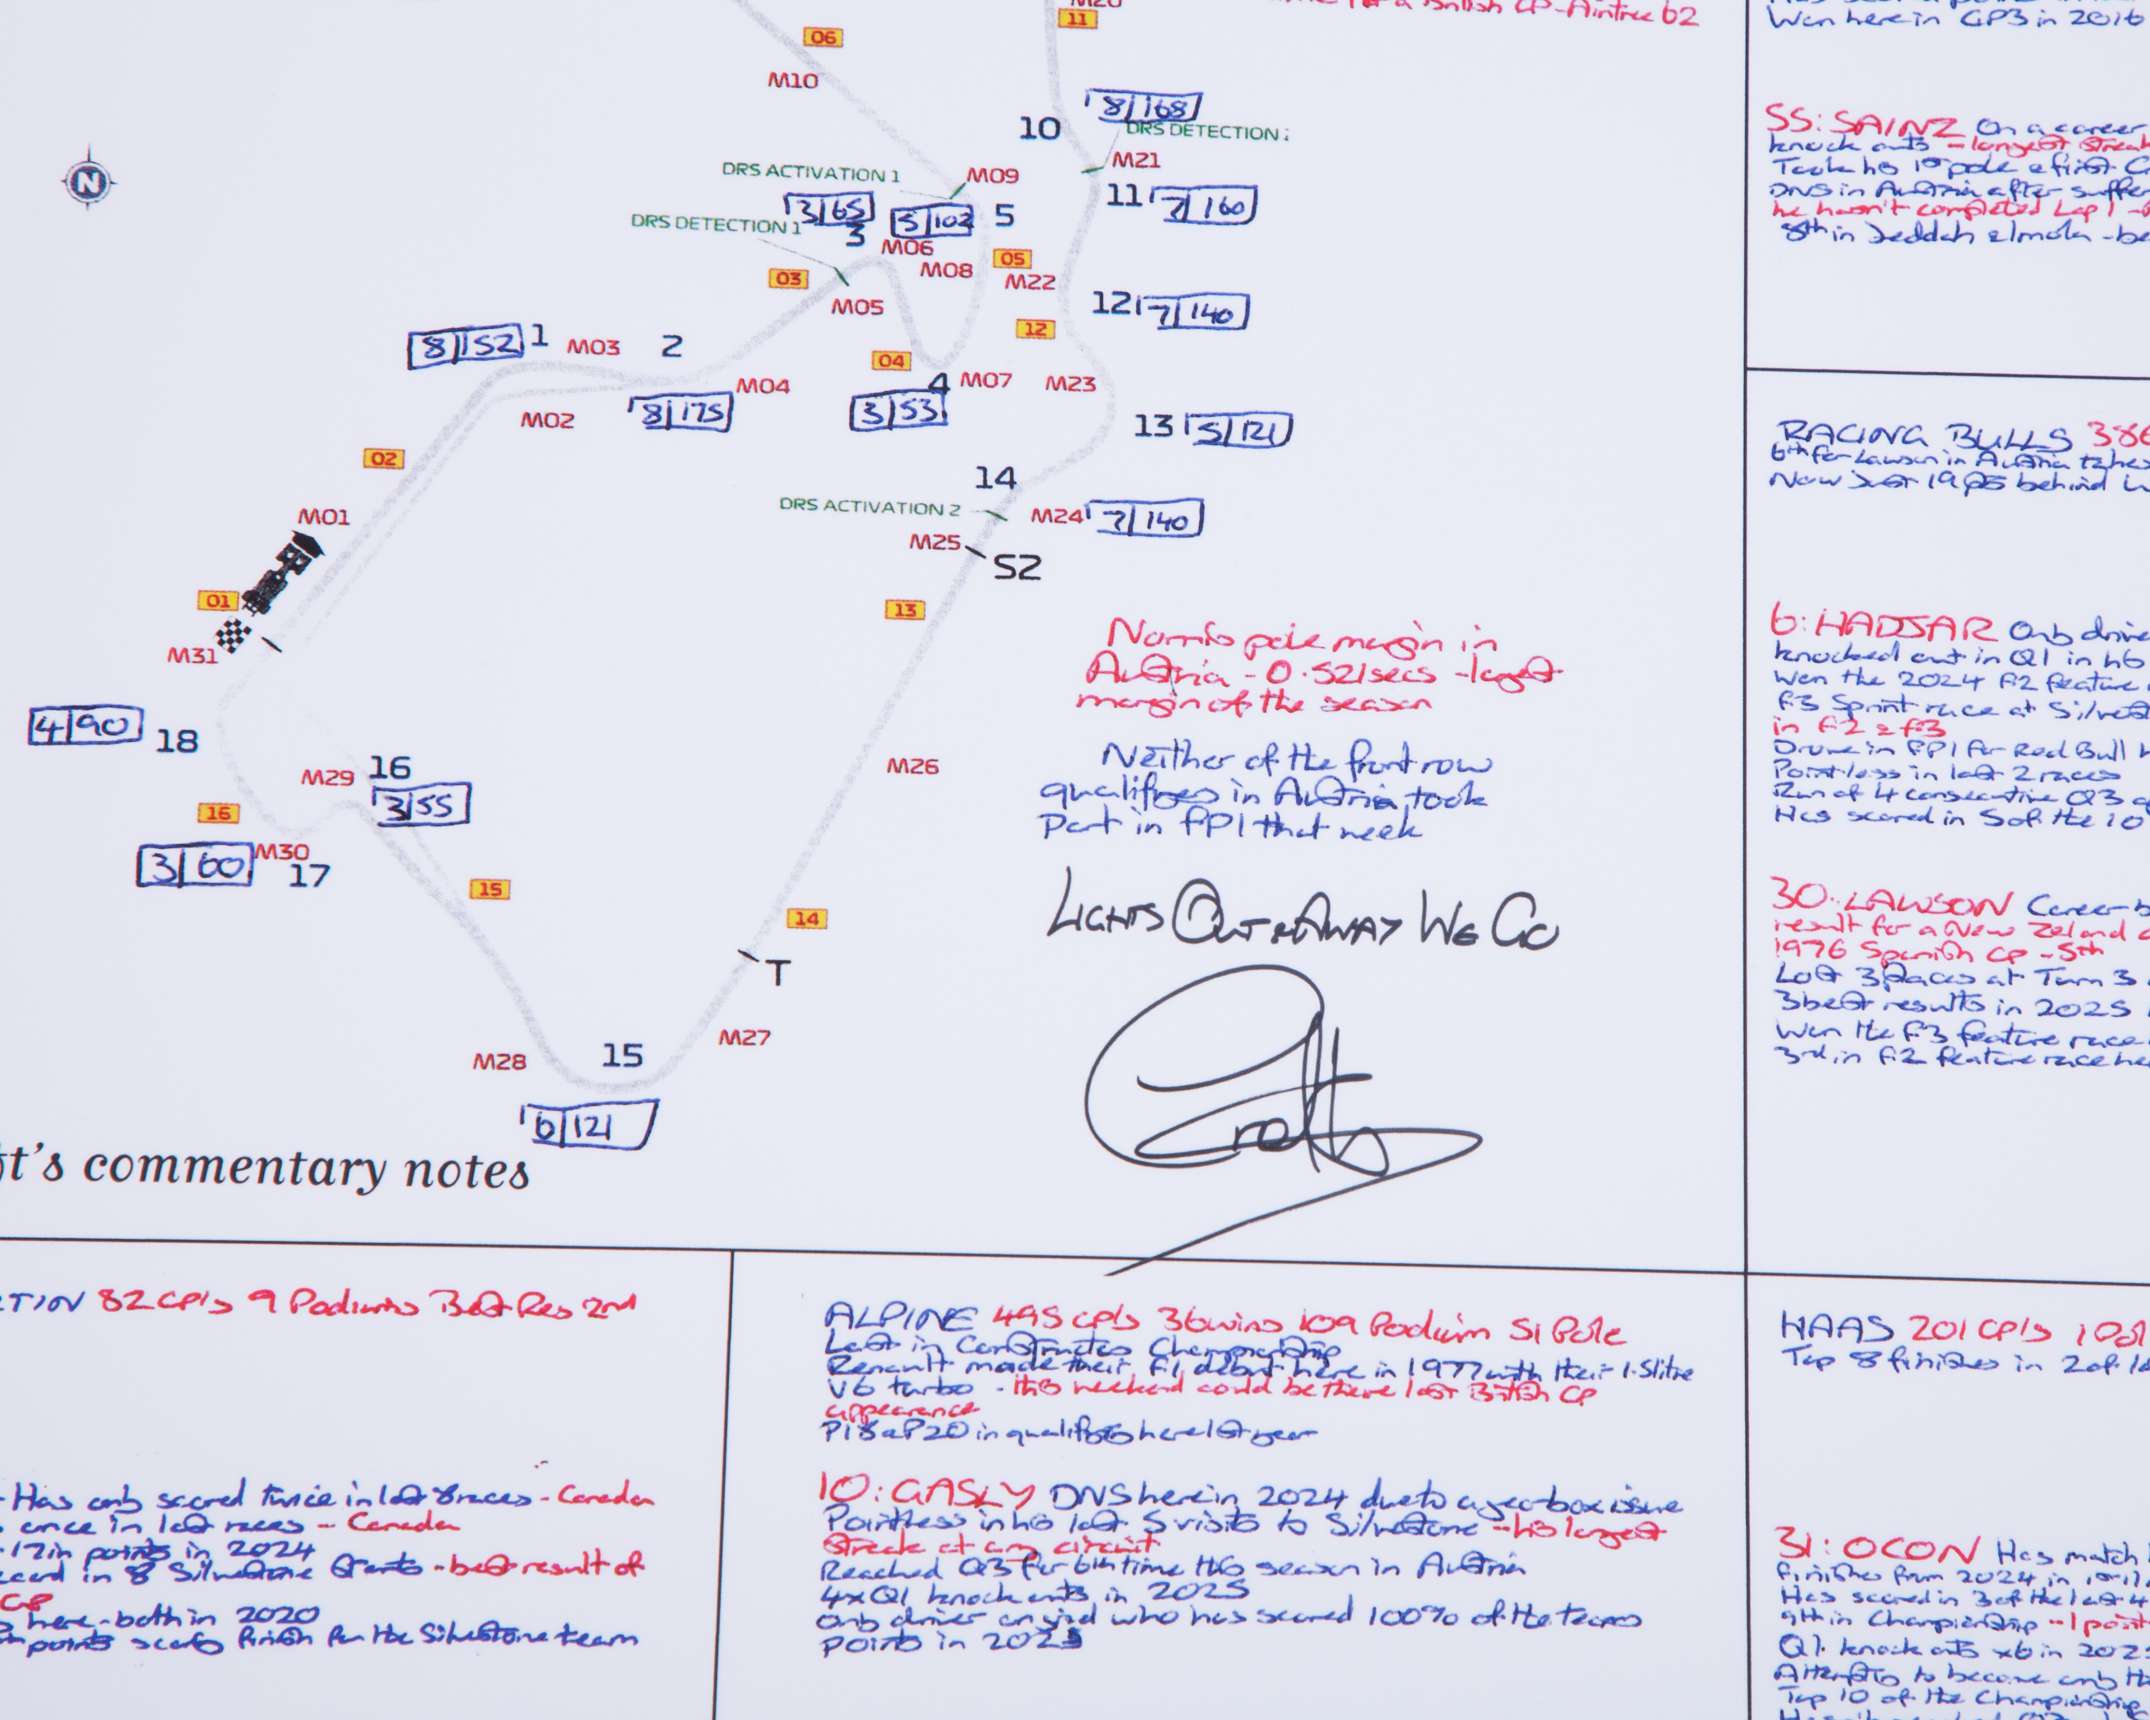 M20
11
for a British GP - Aintree 62
06
M10
8/168
10
DRS DETECTION 2
M21
DRS ACTIVATION 1
M09
3/65
5/102
5
11
7/160
DRS DETECTION 1
3
M06
M08
05
M22
03
M05
12
7/140
12
8/152
1
M03
2
04
4
M07
M23
M04
8/175
3/53
M02
13
5/121
02
14
DRS ACTIVATION 2
M24
7/140
M01
M25
S2
01
13
M31
Norris pole margin in
Austria - 0.521secs - largest
margin of the season
4/90
18
Neither of the front row
qualifiers in Austria took
Part in FP1 that week
M26
M29
16
3/55
16
M30
3/60
17
15
14
LIGHTS OUT & AWAY WE GO
T
M27
M28
15
6/121
Croft
tt's commentary notes
Won here in GP3 in 2016
55: SAINZ On a career
knock outs - longest streak
Took his 1st pole & first G
DNS in Austria after suffer
he hasn't completed Lap 1 -
8th in Jeddah & Imola - be
RACING BULLS 386
6th for Lawson in Austria takes
Now just 19 pts behind W
6: HADJAR Only drive
knocked out in Q1 in his
Won the 2024 F2 feature
F3 Sprint race at Silverst
in F2 & F3
Drove in FP1 for Red Bull h
Pointless in last 2 races
Run of 4 consecutive Q3 a
Has scored in 5 of the 10
30: LAWSON Career b
result for a New Zealand
1976 Spanish GP - 5th
Lost 3 places at Turn 3
3 best results in 2025
Won the F3 feature race
3rd in F2 feature race he
TION 82 GP's 9 Podiums Best Res 2nd
- Has only scored twice in last 8 races - Canada
once in last races - Canada
17 in points in 2024
in 8 Silverstone Starts - best result of
GP
here - both in 2020
points scoring finish for the Silverstone team
ALPINE 495 GP's 36 wins 109 Podium 51 Pole
Last in Constructors Championship
Renault made their F1 debut here in 1977 with their 1.5 litre
V6 turbo - this weekend could be there last British GP
appearance
P18 & P20 in qualifying here last year
10: GASLY DNS here in 2024 due to a gearbox issue
Pointless in his last 5 visits to Silverstone - his longest
streak at any circuit
Reached Q3 for 6th time this season in Austria
4x Q1 knock outs in 2025
Only driver on grid who has scored 100% of the teams
points in 2025
HAAS 201 GP's 1 Pol
Top 8 finishes in 2 of
31: OCON Has match
finishes from 2024 in
Has scored in 3 of the last 4
9th in Championship - 1 point
Q1 knock outs x6 in 202
Attempts to become only th
Top 10 of the Championship